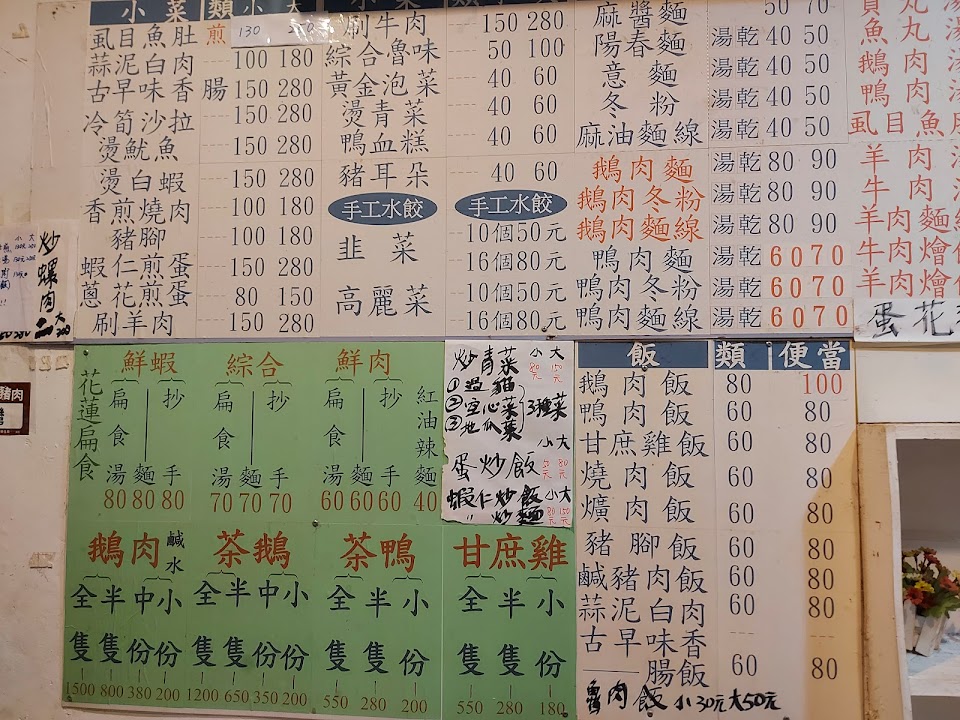 小菜類 小 大
虱目魚肚 煎 130
蒜泥白肉 100 180
古早味香腸 150 280
冷筍沙拉 150 280
燙魷魚 150 280
燙白蝦 150 280
香煎燒肉 100 180
豬腳 100 180
蝦仁煎蛋 150 280
蔥花煎蛋 80 150
刷羊肉 150 280
刷牛肉 150 280
綜合魯味 50 100
黃金泡菜 40 60
燙青菜 40 60
鴨血糕 40 60
豬耳朵 40 60
手工水餃 手工水餃
韭菜 10個50元
16個80元
高麗菜 10個50元
16個80元
麻醬麵 50 70
陽春麵 湯乾 40 50
意麵 湯乾 40 50
冬粉 湯乾 40 50
麻油麵線 湯乾 40 50
鵝肉麵 湯乾 80 90
鵝肉冬粉 湯乾 80 90
鵝肉麵線 湯乾 80 90
鴨肉麵 湯乾 60 70
鴨肉冬粉 湯乾 60 70
鴨肉麵線 湯乾 60 70
魚丸
鵝肉
鴨肉
虱目魚
羊肉
牛肉
羊肉麵
牛肉燴
羊肉燴
蛋花
炒螺肉
大
花蓮扁食
鮮蝦 綜合 鮮肉
扁食湯 麵 抄手 扁食湯 麵 抄手 扁食湯 麵 抄手 紅油辣麵
80 80 80 70 70 70 60 60 60 40
鵝肉 鹹水 茶鵝 茶鴨 甘庶雞
全隻 半隻 中份 小份 全隻 半隻 中份 小份 全隻 半隻 小份 全隻 半隻 小份
1500 800 380 200 1200 650 350 200 550 280 200 550 280 180
炒青菜 小 大
80元 150元
①過貓
②空心菜 3種菜
③地瓜菜
小 大
蛋炒飯
蝦仁炒飯 小 大
〃 炒麵 80元 150元
飯類 便當
鵝肉飯 80 100
鴨肉飯 60 80
甘庶雞飯 60 80
燒肉飯 60 80
爌肉飯 60 80
豬腳飯 60 80
鹹豬肉飯 60 80
蒜泥白肉 60 80
古早味香
腸飯 60 80
魯肉飯 小30元 大50元